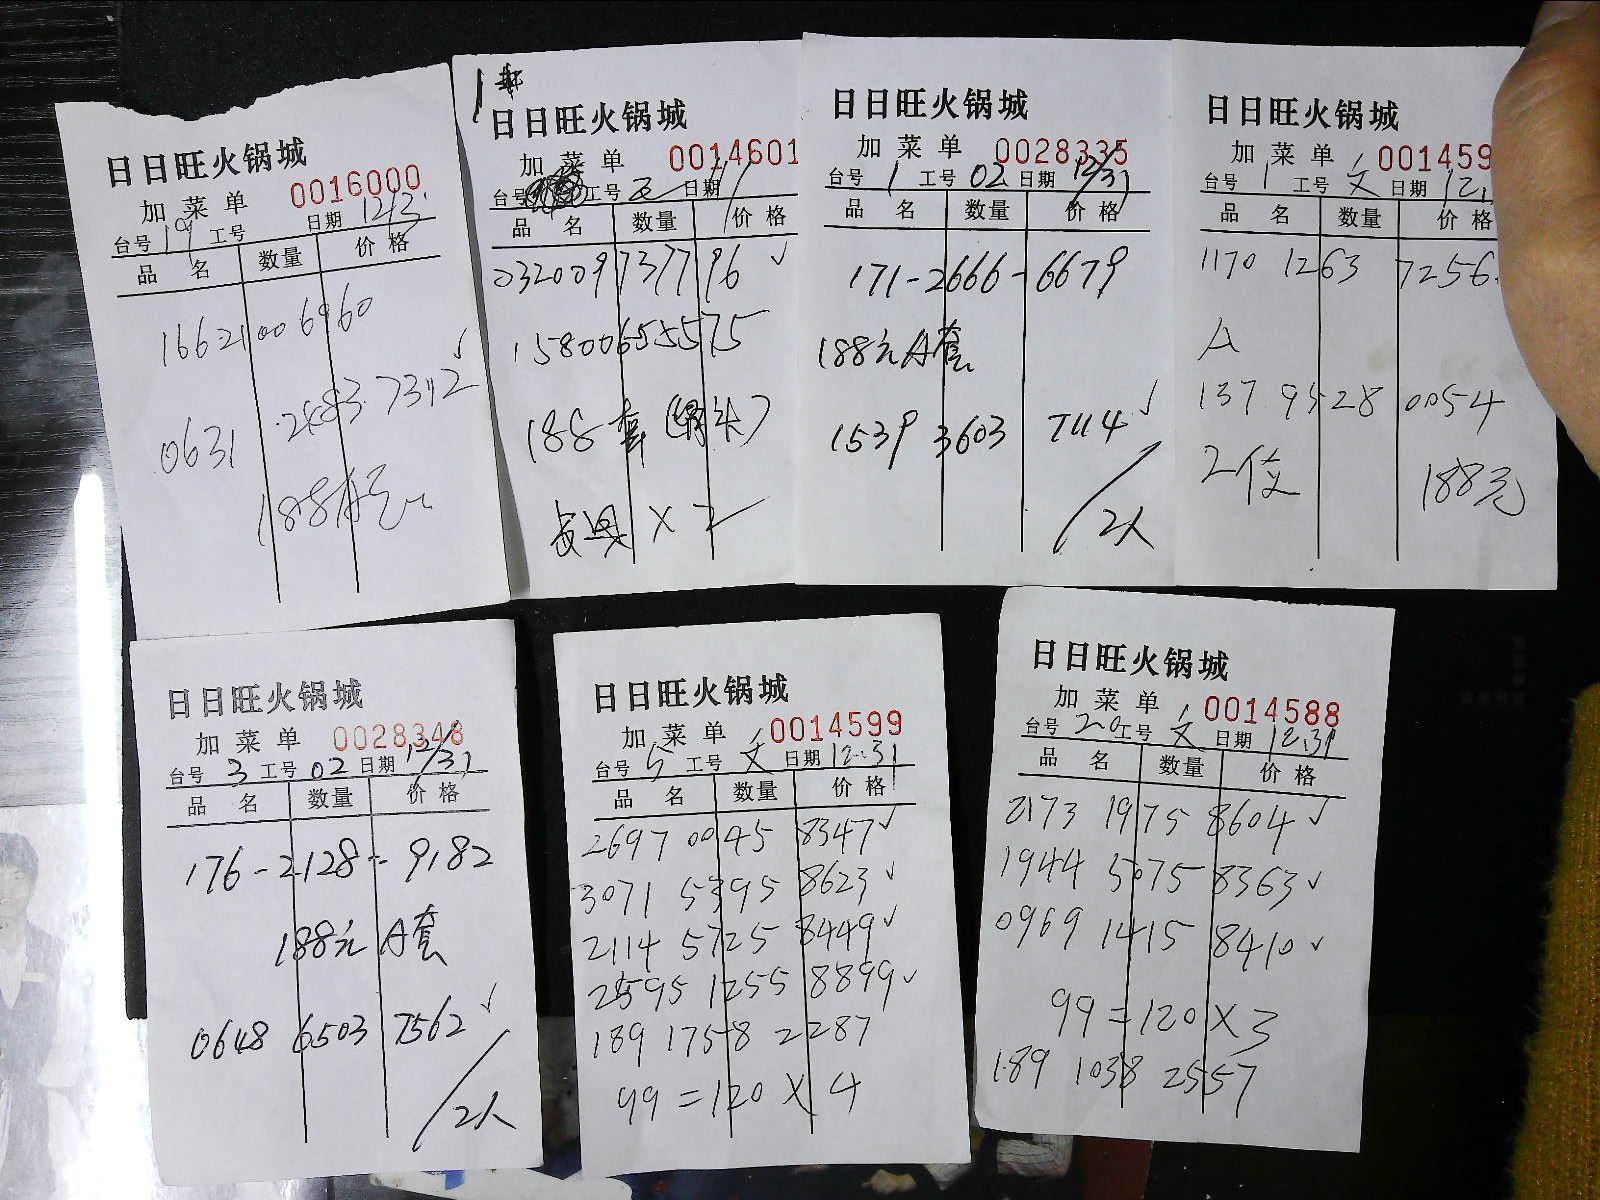 日日旺火锅城
加菜单 0016000
台号 19 工号 日期 12/31
品 名 数量 价格
16621006960
0631 2483 7312 ✓
188
1
日日旺火锅城
加菜单 0014601
台号 工号 日期
品 名 数量 价格
0320097377 96 ✓
15800655575
188 套
餐具 × 2
日日旺火锅城
加菜单 0028335
台号 1 工号 02 日期 12/31
品 名 数量 价格
171-2666-6679
188元A套
1539 3603 7114 ✓
/2人
日日旺火锅城
加菜单 001459
台号 1 工号 文 日期 12.
品 名 数量 价格
1170 1263 7256
A
137 9528 0054
2位 188元
日日旺火锅城
加菜单 0028348
台号 3 工号 02 日期 12/31
品 名 数量 价格
176-2128-9182
188元 A套
0648 6503 7562 ✓
/2人
日日旺火锅城
加菜单 0014599
台号 5 工号 文 日期 12.31
品 名 数量 价格
2697 0045 8347 ✓
3071 5395 8623 ✓
2114 5725 8449 ✓
2595 1255 8899 ✓
189 1758 2287
99=120 × 4
日日旺火锅城
加菜单 0014588
台号 20 工号 文 日期 12.31
品 名 数量 价格
2173 1975 8604 ✓
1944 5075 8363 ✓
0969 1415 8410 ✓
99=120 × 3
189 1038 2557